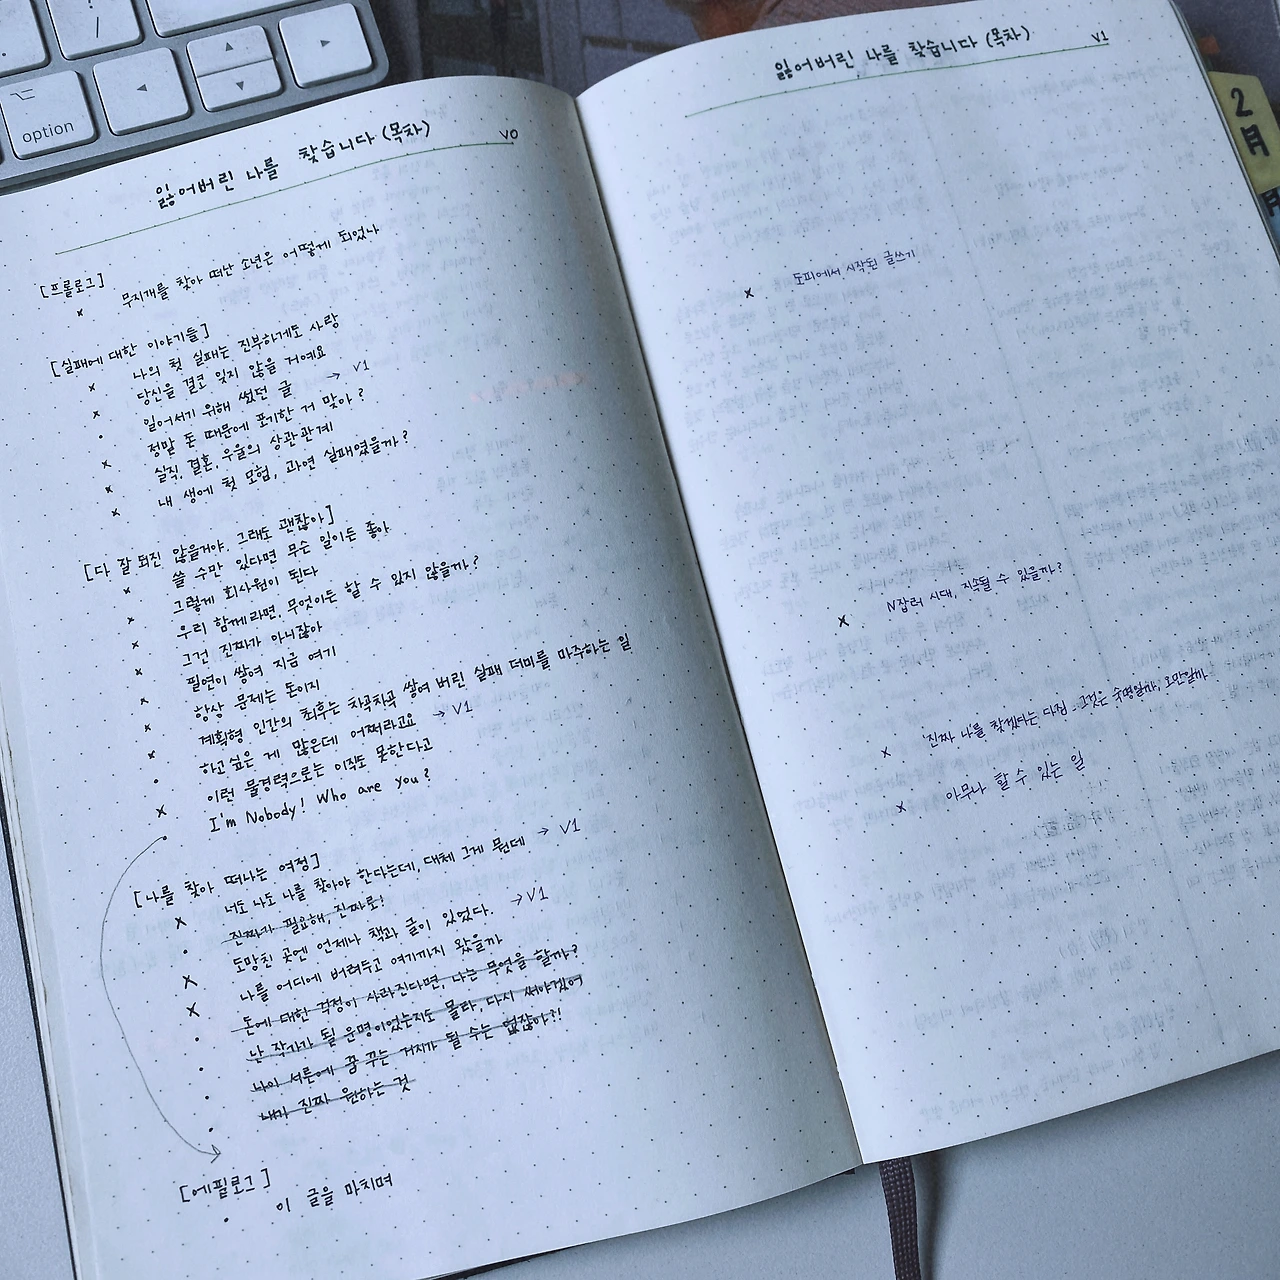 option
잃어버린 나를 찾습니다 (목차) V0
[프롤로그]
x 무지개를 찾아 떠난 소년은 어떻게 되었나
[실패에 대한 이야기들]
x 나의 첫 실패는 진부하게도 사랑
x 당신을 결코 잊지 않을 거예요
· 일어서기 위해 썼던 글 → V1
x 정말 돈 때문에 포기한 거 맞아?
x 실직, 결혼, 우울의 상관관계
x 내 생에 첫 모험, 과연 실패였을까?
[다 잘 되진 않을거야, 그래도 괜찮아]
x 쓸 수만 있다면 무슨 일이든 좋아
x 그렇게 회사원이 된다
x 우리 함께라면, 무엇이든 할 수 있지 않을까?
x 그건 진짜가 아니잖아
x 필연이 쌓여 지금 여기
x 항상 문제는 돈이지
x 계획형 인간의 최후는 차곡차곡 쌓여 버린 실패 더미를 마주하는 일
· 하고 싶은 게 많은데 어쩌라고요 → V1
x 이런 물경력으로는 이직도 못한다고
· I'm Nobody! Who are you?
[나를 찾아 떠나는 여정]
x 너도 나도 나를 찾아야 한다는데, 대체 그게 뭔데 → V1
· 진짜가 필요해, 진짜로!
x 도망친 곳엔 언제나 책과 글이 있었다. → V1
x 나를 어디에 버려두고 여기까지 왔을까
· 돈에 대한 걱정이 사라진다면, 나는 무엇을 할까?
· 난 작가가 될 운명이었는지도 몰라, 다시 써야겠어
· 나이 서른에 꿈 꾸는 거지가 될 수는 없잖아?!
· 내가 진짜 원하는 것
[에필로그]
· 이 글을 마치며
잃어버린 나를 찾습니다 (목차) V1
x 도피에서 시작된 글쓰기
x N잡러 시대, 지속될 수 있을까?
x '진짜 나'를 찾겠다는 다짐 - 그것은 숙명일까, 오만일까
x 아무나 할 수 있는 일
2
月